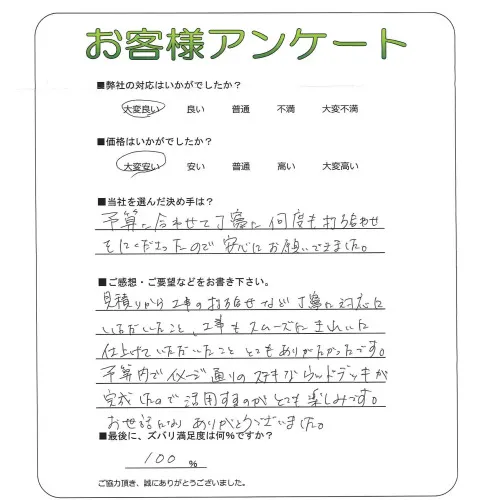 お客様アンケート
■弊社の対応はいかがでしたか?
大変良い 良い 普通 不満 大変不満
■価格はいかがでしたか?
大変安い 安い 普通 高い 大変高い
■当社を選んだ決め手は?
予算に合わせて丁寧に何度も打ち合わせ
をしてくださったので安心してお願いできました。
■ご感想・ご要望などをお書き下さい。
見積りから工事の打ち合せなど丁寧に対応
いただいたこと、工事もスムーズにきれいに
仕上げていただいたこととてもありがたかったです。
予算内でイメージ通りのステキなウッドデッキが
完成したので活用するのがとても楽しみです。
お世話になりありがとうございました。
■最後に、ズバリ満足度は何%ですか?
100 %
ご協力頂き、誠にありがとうございました。